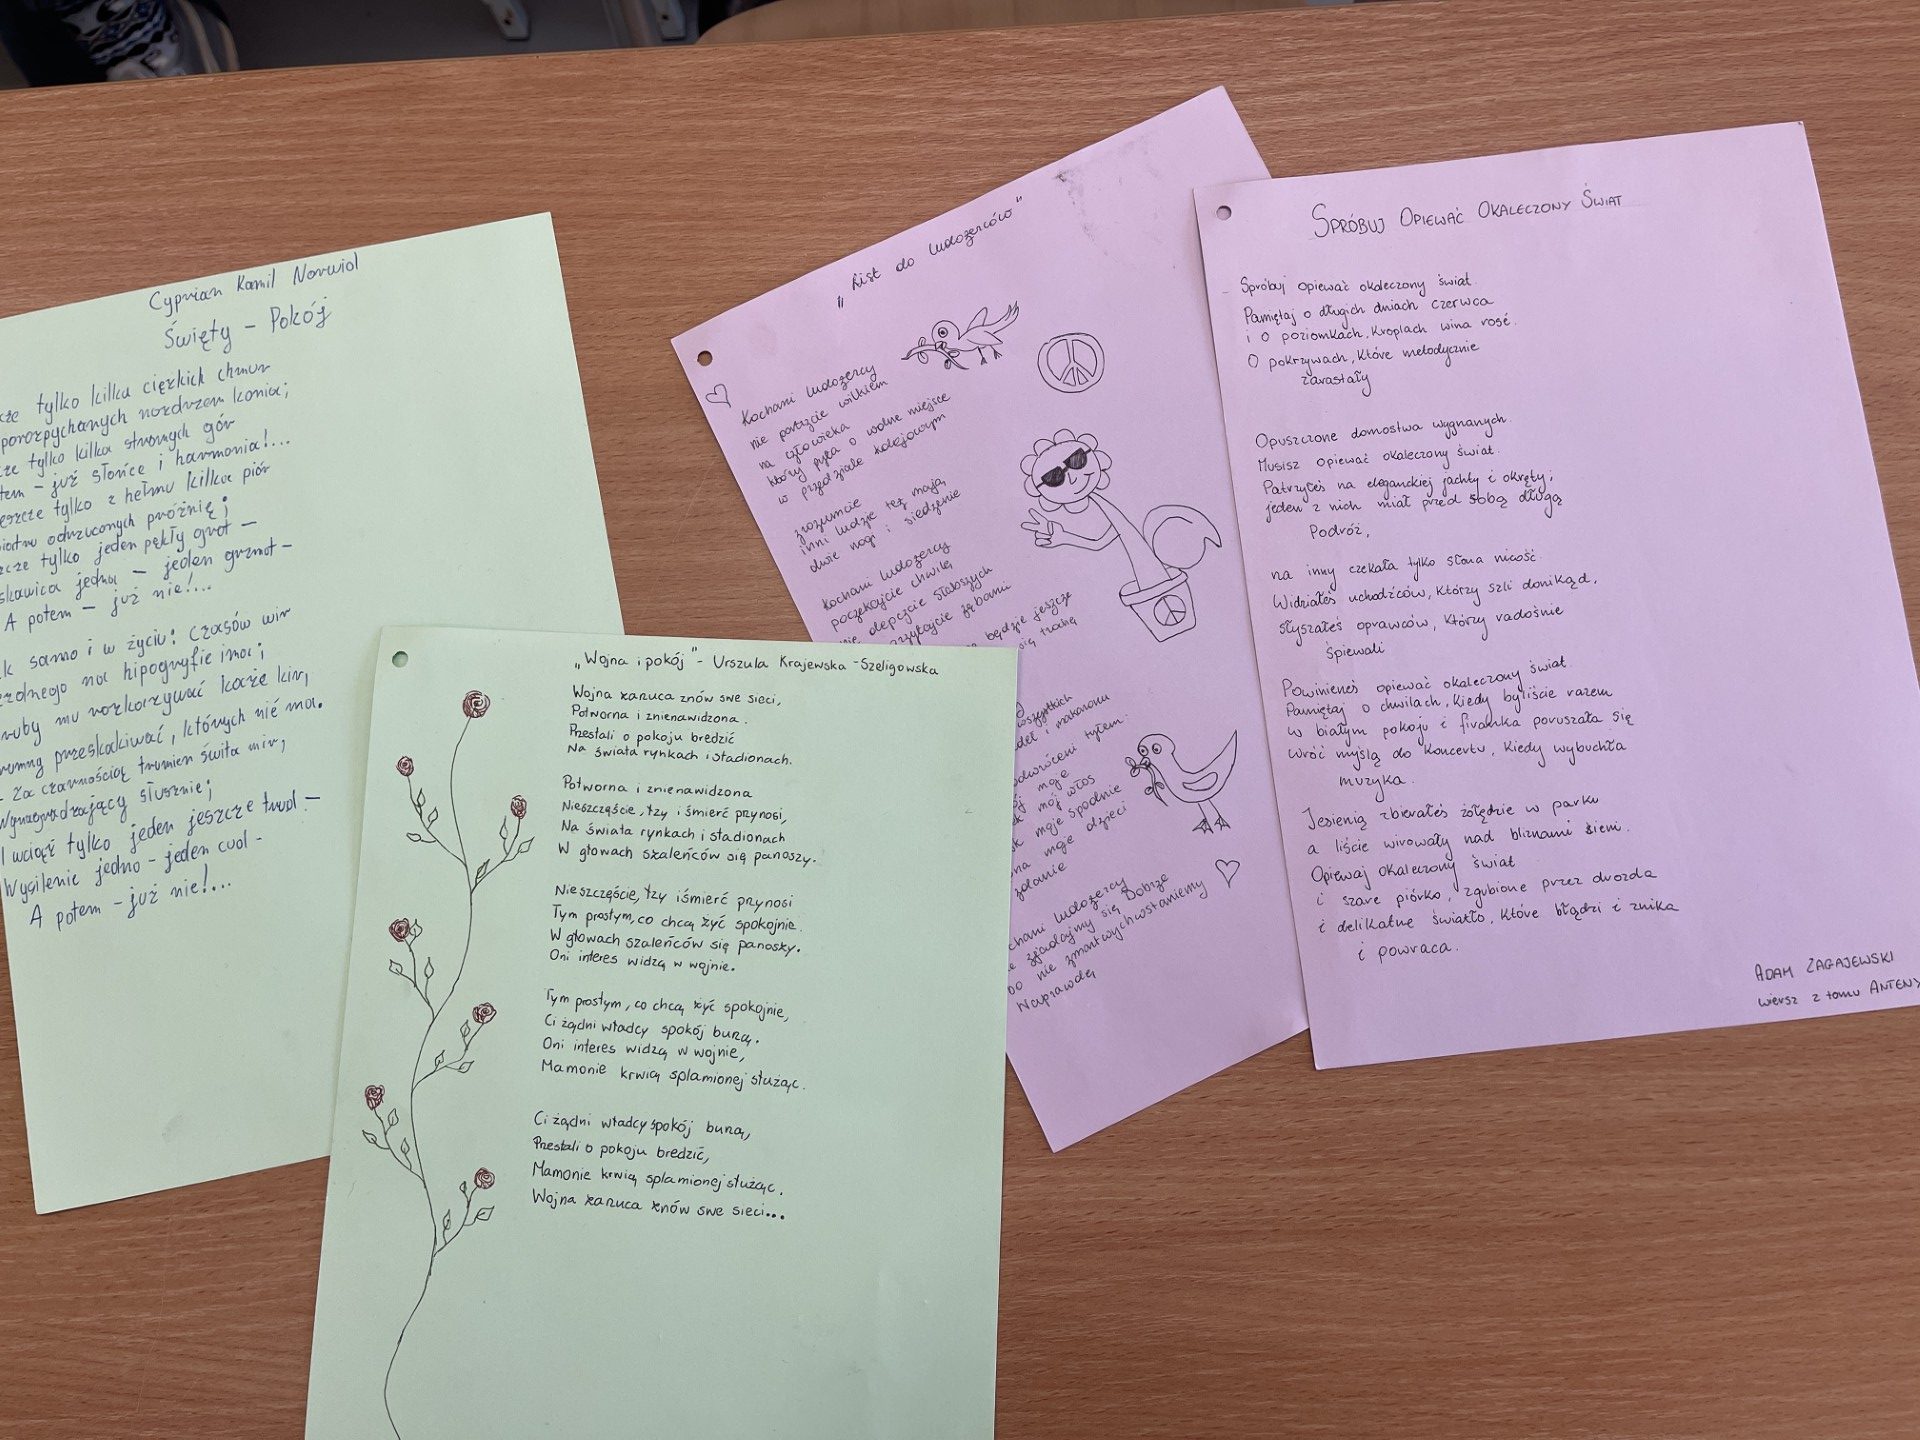 Cyprian Kamil Norwid
Święty - Pokój
tylko kilka ciężkich chmur
porozpychanych nozdrzem konia;
tylko kilka stromych gór
już słońce i harmonia!...
tylko z hełmu kilka piór
odrzuconych próżnię;
tylko jeden pękły grot -
jedna - jeden grzmot -
A potem - już nie!...
samo i w życiu: czasów wir
na hipogryfie ima;
mu rozkorzywać każe kir,
przeskakiwać, których nie ma.
- Za czarnością trumien świta mir,
Wynagradzający słusznie;
I wciąż tylko jeden jeszcze trud -
Wysilenie jedno - jeden cud -
A potem - już nie!...
„Wojna i pokój" - Urszula Krajewska-Szeligowska
Wojna zarzuca znów swe sieci,
Potworna i znienawidzona.
Przestali o pokoju bredzić
Na świata rynkach i stadionach.
Potworna i znienawidzona
Nieszczęście, łzy i śmierć przynosi,
Na świata rynkach i stadionach
W głowach szaleńców się panoszy.
Nieszczęście, łzy i śmierć przynosi
Tym prostym, co chcą żyć spokojnie.
W głowach szaleńców się panoszy.
Oni interes widzą w wojnie.
Tym prostym, co chcą żyć spokojnie,
Ci żądni władcy spokój burzą.
Oni interes widzą w wojnie,
Mamonie krwią splamionej służąc.
Ci żądni władcy spokój burzą,
Przestali o pokoju bredzić,
Mamonie krwią splamionej służąc.
Wojna zarzuca znów swe sieci...
„List do ludożerców"
Kochani ludożercy
nie patrzcie wilkiem
na człowieka
który pyta o wolne miejsce
w przedziale kolejowym
zrozumcie
inni ludzie też mają
dwie nogi i siedzenie
Kochani ludożercy
poczekajcie chwilę
nie depczcie słabszych
zębami
będzie jeszcze
się trochę
wszystkich
i makaronu
odwróceni tyłem:
moje
mój włos
moje spodnie
moje dzieci
zdanie
ludożercy
zjadajmy się Dobrze
bo nie zmartwychwstaniemy
Naprawdę
SPRÓBUJ OPIEWAĆ OKALECZONY ŚWIAT
Spróbuj opiewać okaleczony świat.
Pamiętaj o długich dniach czerwca
i o poziomkach, kroplach wina rosé.
O pokrzywach, które metodycznie
zarastały
Opuszczone domostwa wygnanych.
Musisz opiewać okaleczony świat.
Patrzyłeś na eleganckiej jachty i okręty;
jeden z nich miał przed sobą długą
Podróż,
na inny czekała tylko słona nicość.
Widziałeś uchodźców, którzy szli donikąd,
słyszałeś oprawców, którzy radośnie
śpiewali
Powinieneś opiewać okaleczony świat.
Pamiętaj o chwilach, kiedy byliście razem
w białym pokoju i firanka poruszała się
wróć myślą do koncertu, kiedy wybuchła
muzyka.
Jesienią zbierałeś żołędzie w parku
a liście wirowały nad bliznami ziemi.
Opiewaj okaleczony świat
i szare piórko, zgubione przez drozda
i delikatne światło, które błądzi i znika
i powraca.
ADAM ZAGAJEWSKI
wiersz z tomu ANTENY